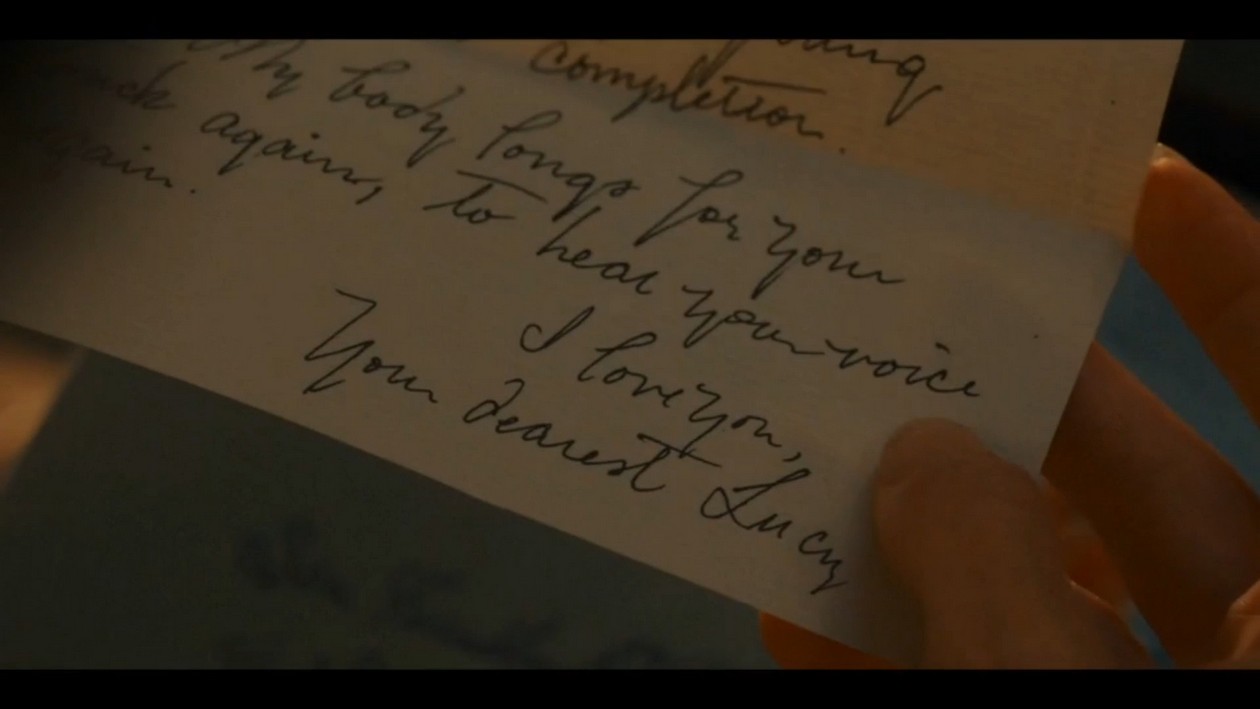 completion.
My body longs for your
again, to hear your voice
again.
I love you,
Your dearest Lucy